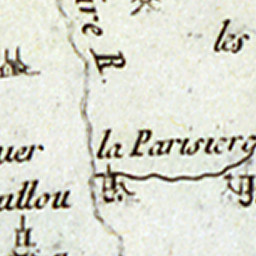 ire R.
les
la Parisierg
uer
allou